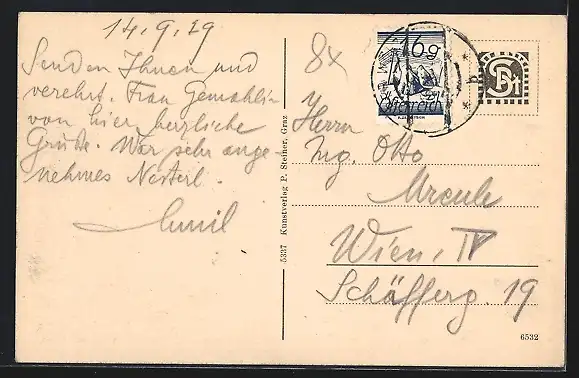 14.9.29
Senden Ihnen und
verehrt. Frau Gemahlin
von hier herzliche
Grüße. War sehr ange-
nehmes Nesterl.
Emil
8x
16 g
Österreich
StSB
5337 Kunstverlag P. Steiner, Graz
Herrn
Ing. Otto
Wien, IV
Schäfferg. 19
6532